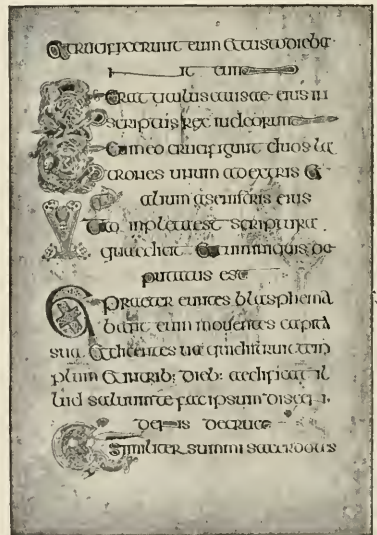 Et crucifixerunt eum et custodieba
nt eum
Et erat titulus causae eius in
scriptus rex iudeorum
Et cum eo crucifigunt duos la
trones unum ad extris et
alium a senistris eius
impleta est scriptura
quae dicit et cum iniquis de
putatus est
praeter euntes blasphema
bant eum mouentes capita
sua et dicentes ua qui distruit tem
plum et in trib: dieb: aedificat il
lud saluum te fac ipsum discen
dens de cruce
similiter summi sacerdotes